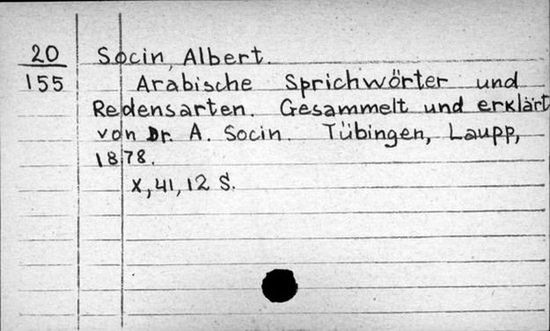 20 Socin, Albert.
155 Arabische Sprichwörter und
Redensarten. Gesammelt und erklärt
von Dr. A. Socin. Tübingen, Laupp,
1878.
X, 41, 12 S.